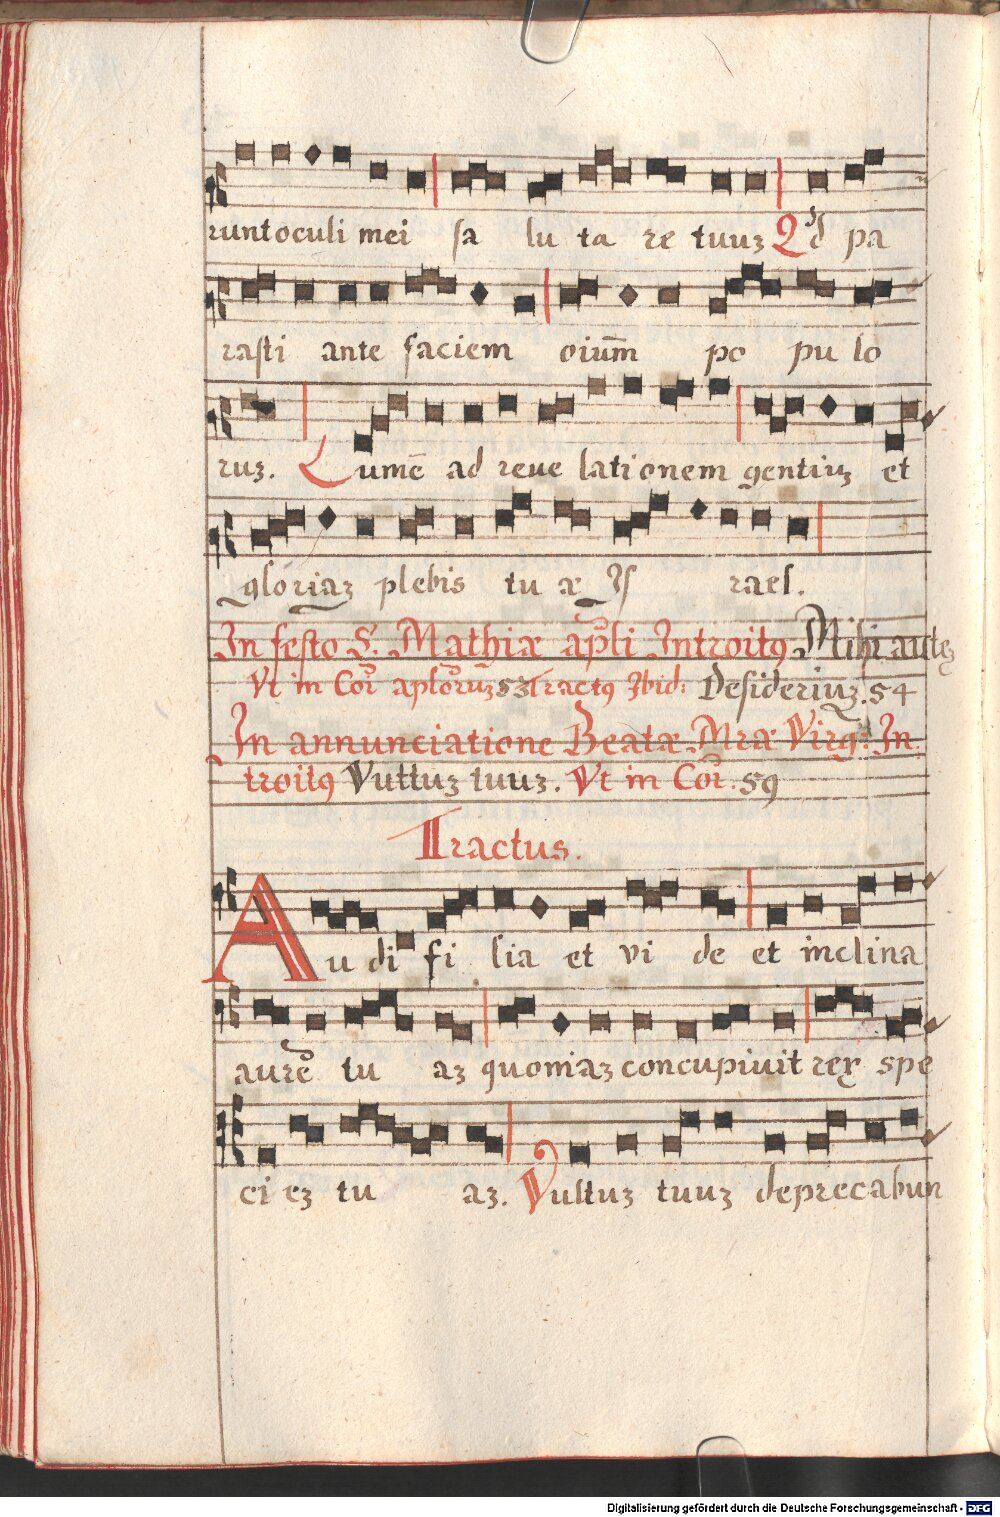 runt oculi mei sa lu ta re tuuʒ Qd pa
rasti ante faciem oiūm po pu lo
ruʒ. Lumē ad reue lationem gentiuʒ et
gloriaʒ plebis tu æ Is rael.
In festo S. Mathiæ apli Introitꝰ Mihi auteʒ
Vt in Cor aploruʒ 53 Tractꝰ Ibid: Desideriuʒ. 54
In annunciatione Beatæ Mræ Virg: In
troitꝰ Vuttuʒ tuuʒ. Vt in Cor. 59
Tractus.
Audi fi lia et vi de et inclina
aurē tu aʒ quoniaʒ concupiuit rex spe
ci eʒ tu aʒ. Vultuʒ tuuʒ deprecabun
Digitalisierung gefördert durch die Deutsche Forschungsgemeinschaft - DFG